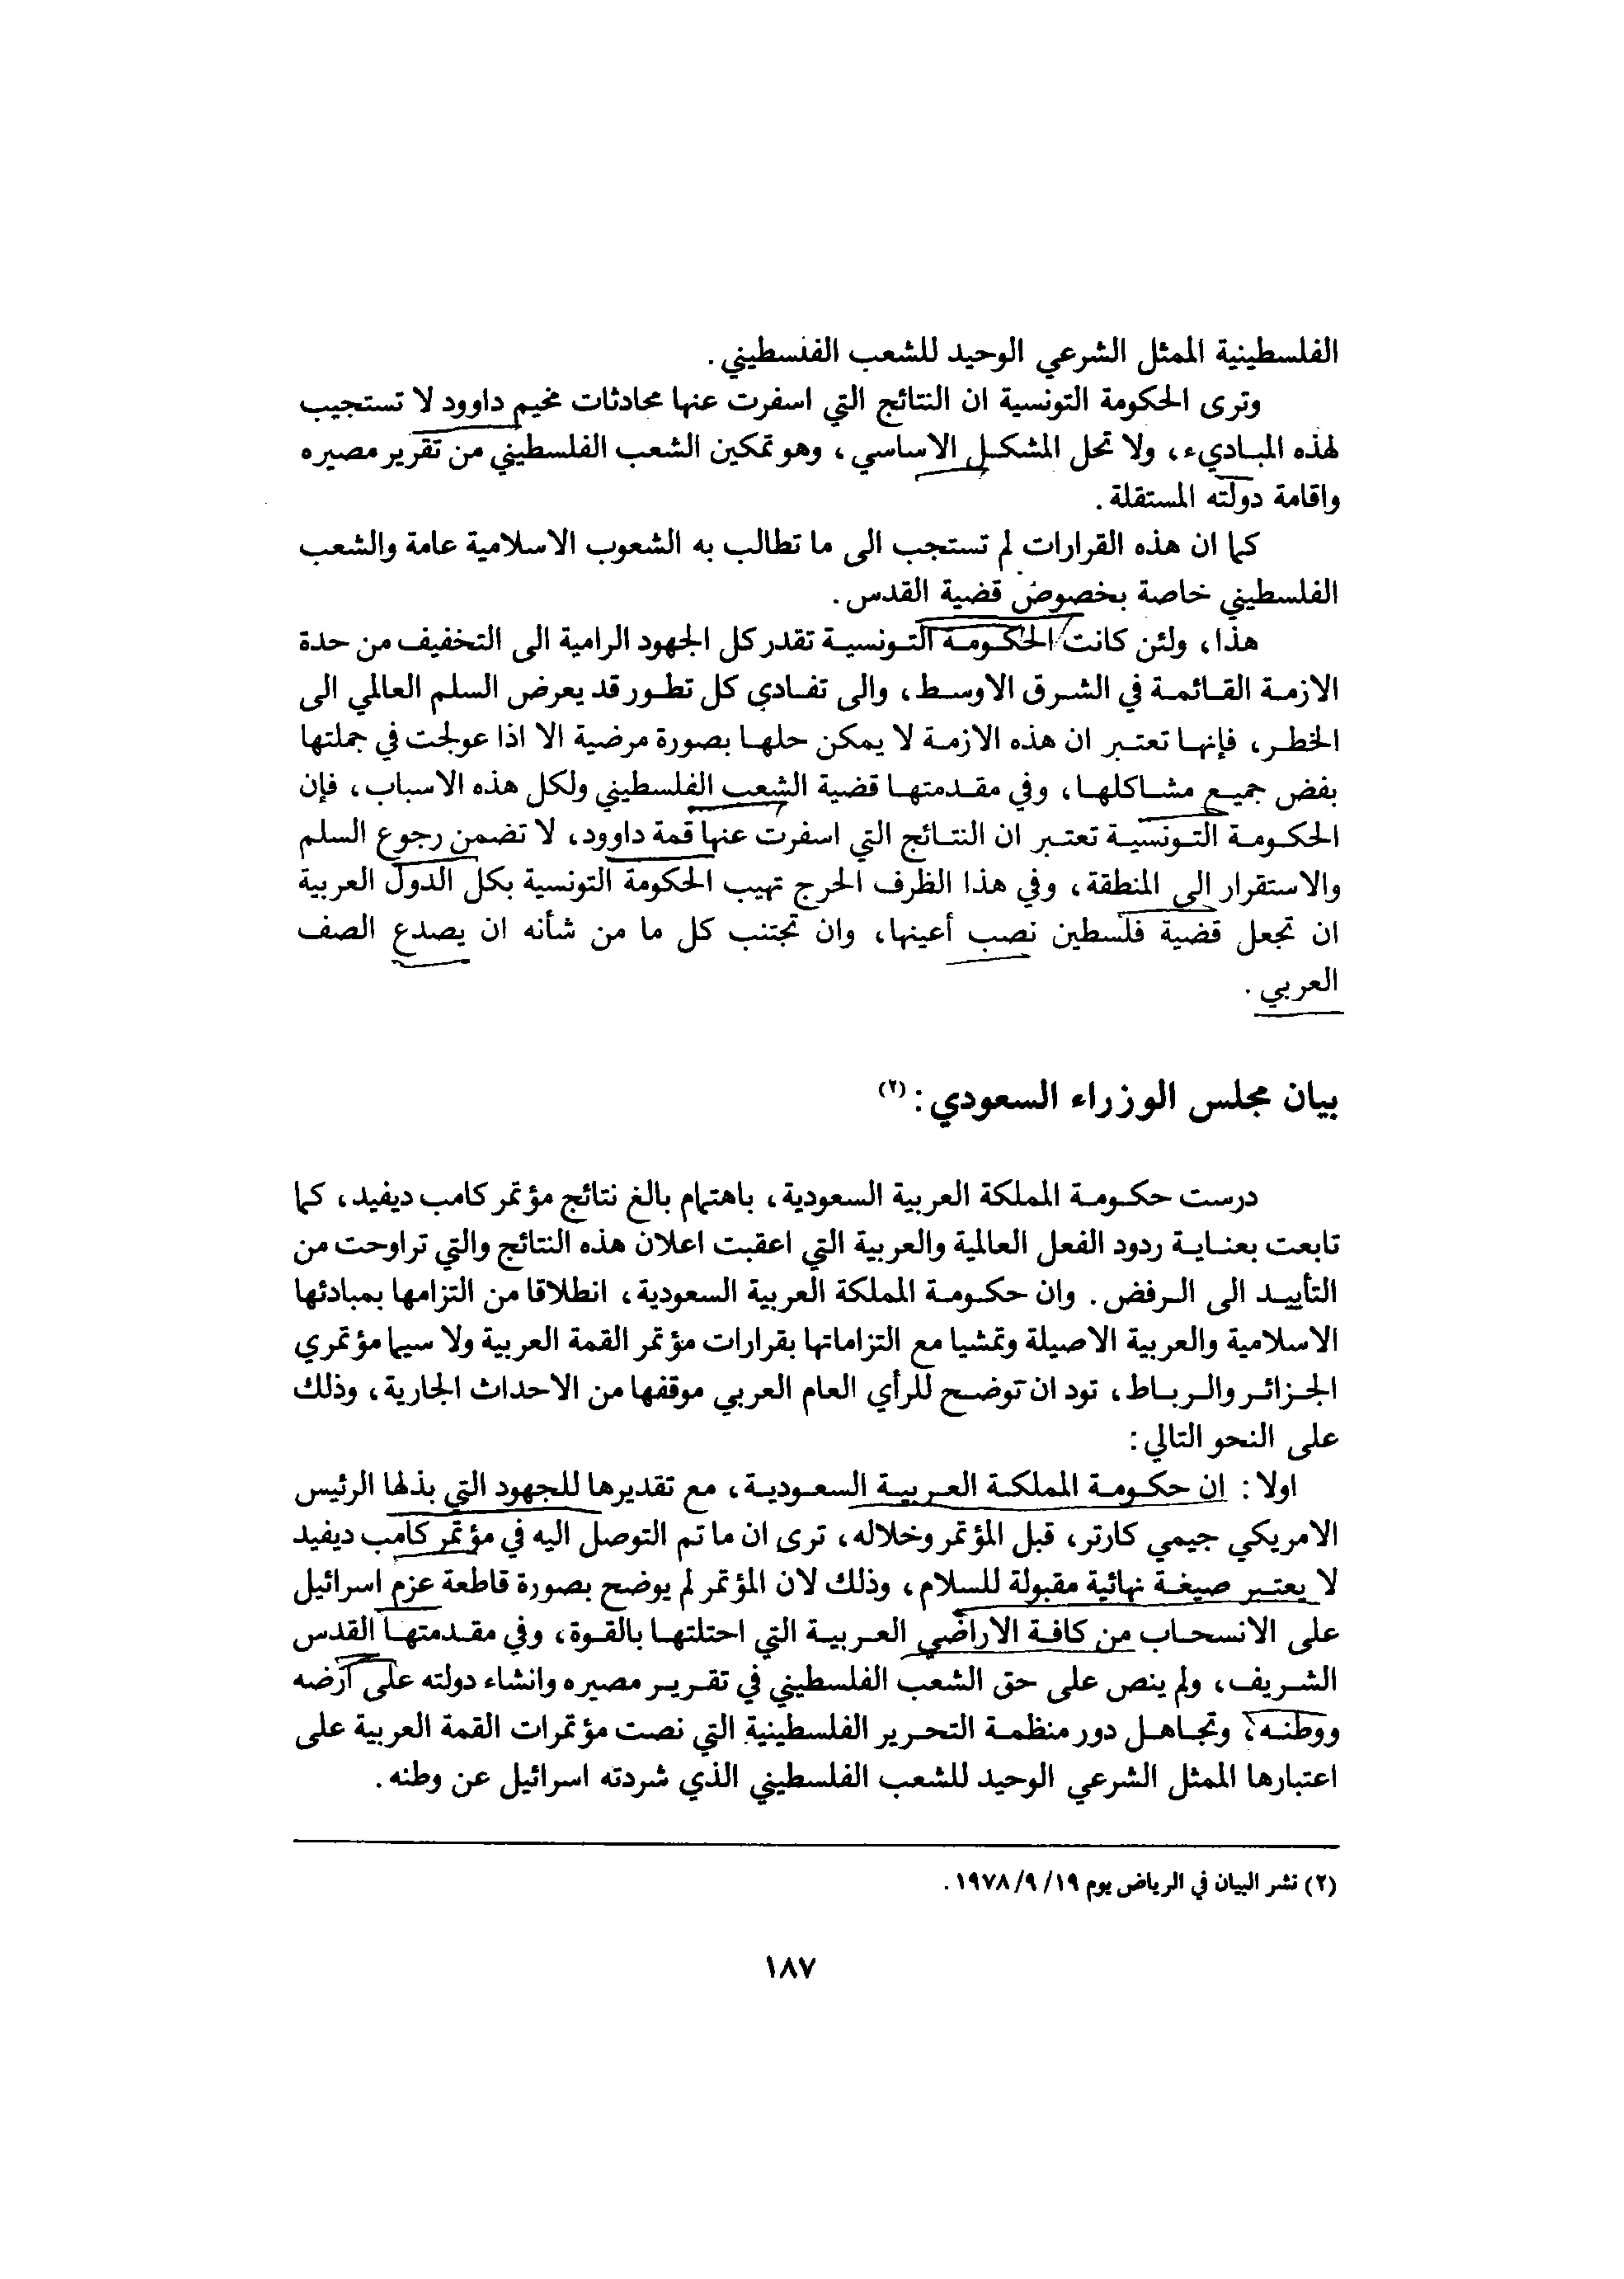 الفلسطينية الممثل الشرعي الوحيد للشعب الفلسطيني .
وترى الحكومة التونسية ان النتائج التي اسفرت عنها محادثات مخيم داوود لا تستجيب
لهذه المباديء، ولا تحل المشكل الاساسي، وهو تمكين الشعب الفلسطيني من تقرير مصيره
واقامة دولته المستقلة .
كما ان هذه القرارات لم تستجب الى ما تطالب به الشعوب الاسلامية عامة والشعب
الفلسطيني خاصة بخصوص قضية القدس .
هذا، ولئن كانت الحكومة التونسية تقدر كل الجهود الرامية الى التخفيف من حدة
الازمة القائمة في الشرق الاوسط، والى تفادي كل تطور قد يعرض السلم العالمي الى
الخطر، فإنها تعتبر ان هذه الازمة لا يمكن حلها بصورة مرضية الا اذا عولجت في جملتها
بفض جميع مشاكلها، وفي مقدمتها قضية الشعب الفلسطيني ولكل هذه الاسباب، فإن
الحكومة التونسية تعتبر ان النتائج التي اسفرت عنها قمة داوود، لا تضمن رجوع السلم
والاستقرار الى المنطقة، وفي هذا الظرف الحرج تهيب الحكومة التونسية بكل الدول العربية
ان تجعل قضية فلسطين نصب أعينها، وان تجتنب كل ما من شأنه ان يصدع الصف
العربي .
بيان مجلس الوزراء السعودي : (٢)
درست حكومة المملكة العربية السعودية، باهتمام بالغ نتائج مؤتمر كامب ديفيد، كما
تابعت بعناية ردود الفعل العالمية والعربية التي اعقبت اعلان هذه النتائج والتي تراوحت من
التأييد الى الرفض . وان حكومة المملكة العربية السعودية، انطلاقا من التزامها بمبادئها
الاسلامية والعربية الاصيلة وتمشيا مع التزاماتها بقرارات مؤتمر القمة العربية ولا سيما مؤتمري
الجزائر والرباط، تود ان توضح للرأي العام العربي موقفها من الاحداث الجارية، وذلك
على النحو التالي :
اولا : ان حكومة المملكة العربية السعودية، مع تقديرها للجهود التي بذلها الرئيس
الامريكي جيمي كارتر، قبل المؤتمر وخلاله، ترى ان ما تم التوصل اليه في مؤتمر كامب ديفيد
لا يعتبر صيغة نهائية مقبولة للسلام، وذلك لان المؤتمر لم يوضح بصورة قاطعة عزم اسرائيل
على الانسحاب من كافة الاراضي العربية التي احتلتها بالقوة، وفي مقدمتها القدس
الشريف، ولم ينص على حق الشعب الفلسطيني في تقرير مصيره وانشاء دولته على أرضه
ووطنه، وتجاهل دور منظمة التحرير الفلسطينية التي نصت مؤتمرات القمة العربية على
اعتبارها الممثل الشرعي الوحيد للشعب الفلسطيني الذي شردته اسرائيل عن وطنه .
(٢) نشر البيان في الرياض يوم ١٩/ ٩/ ١٩٧٨ .
١٨٧